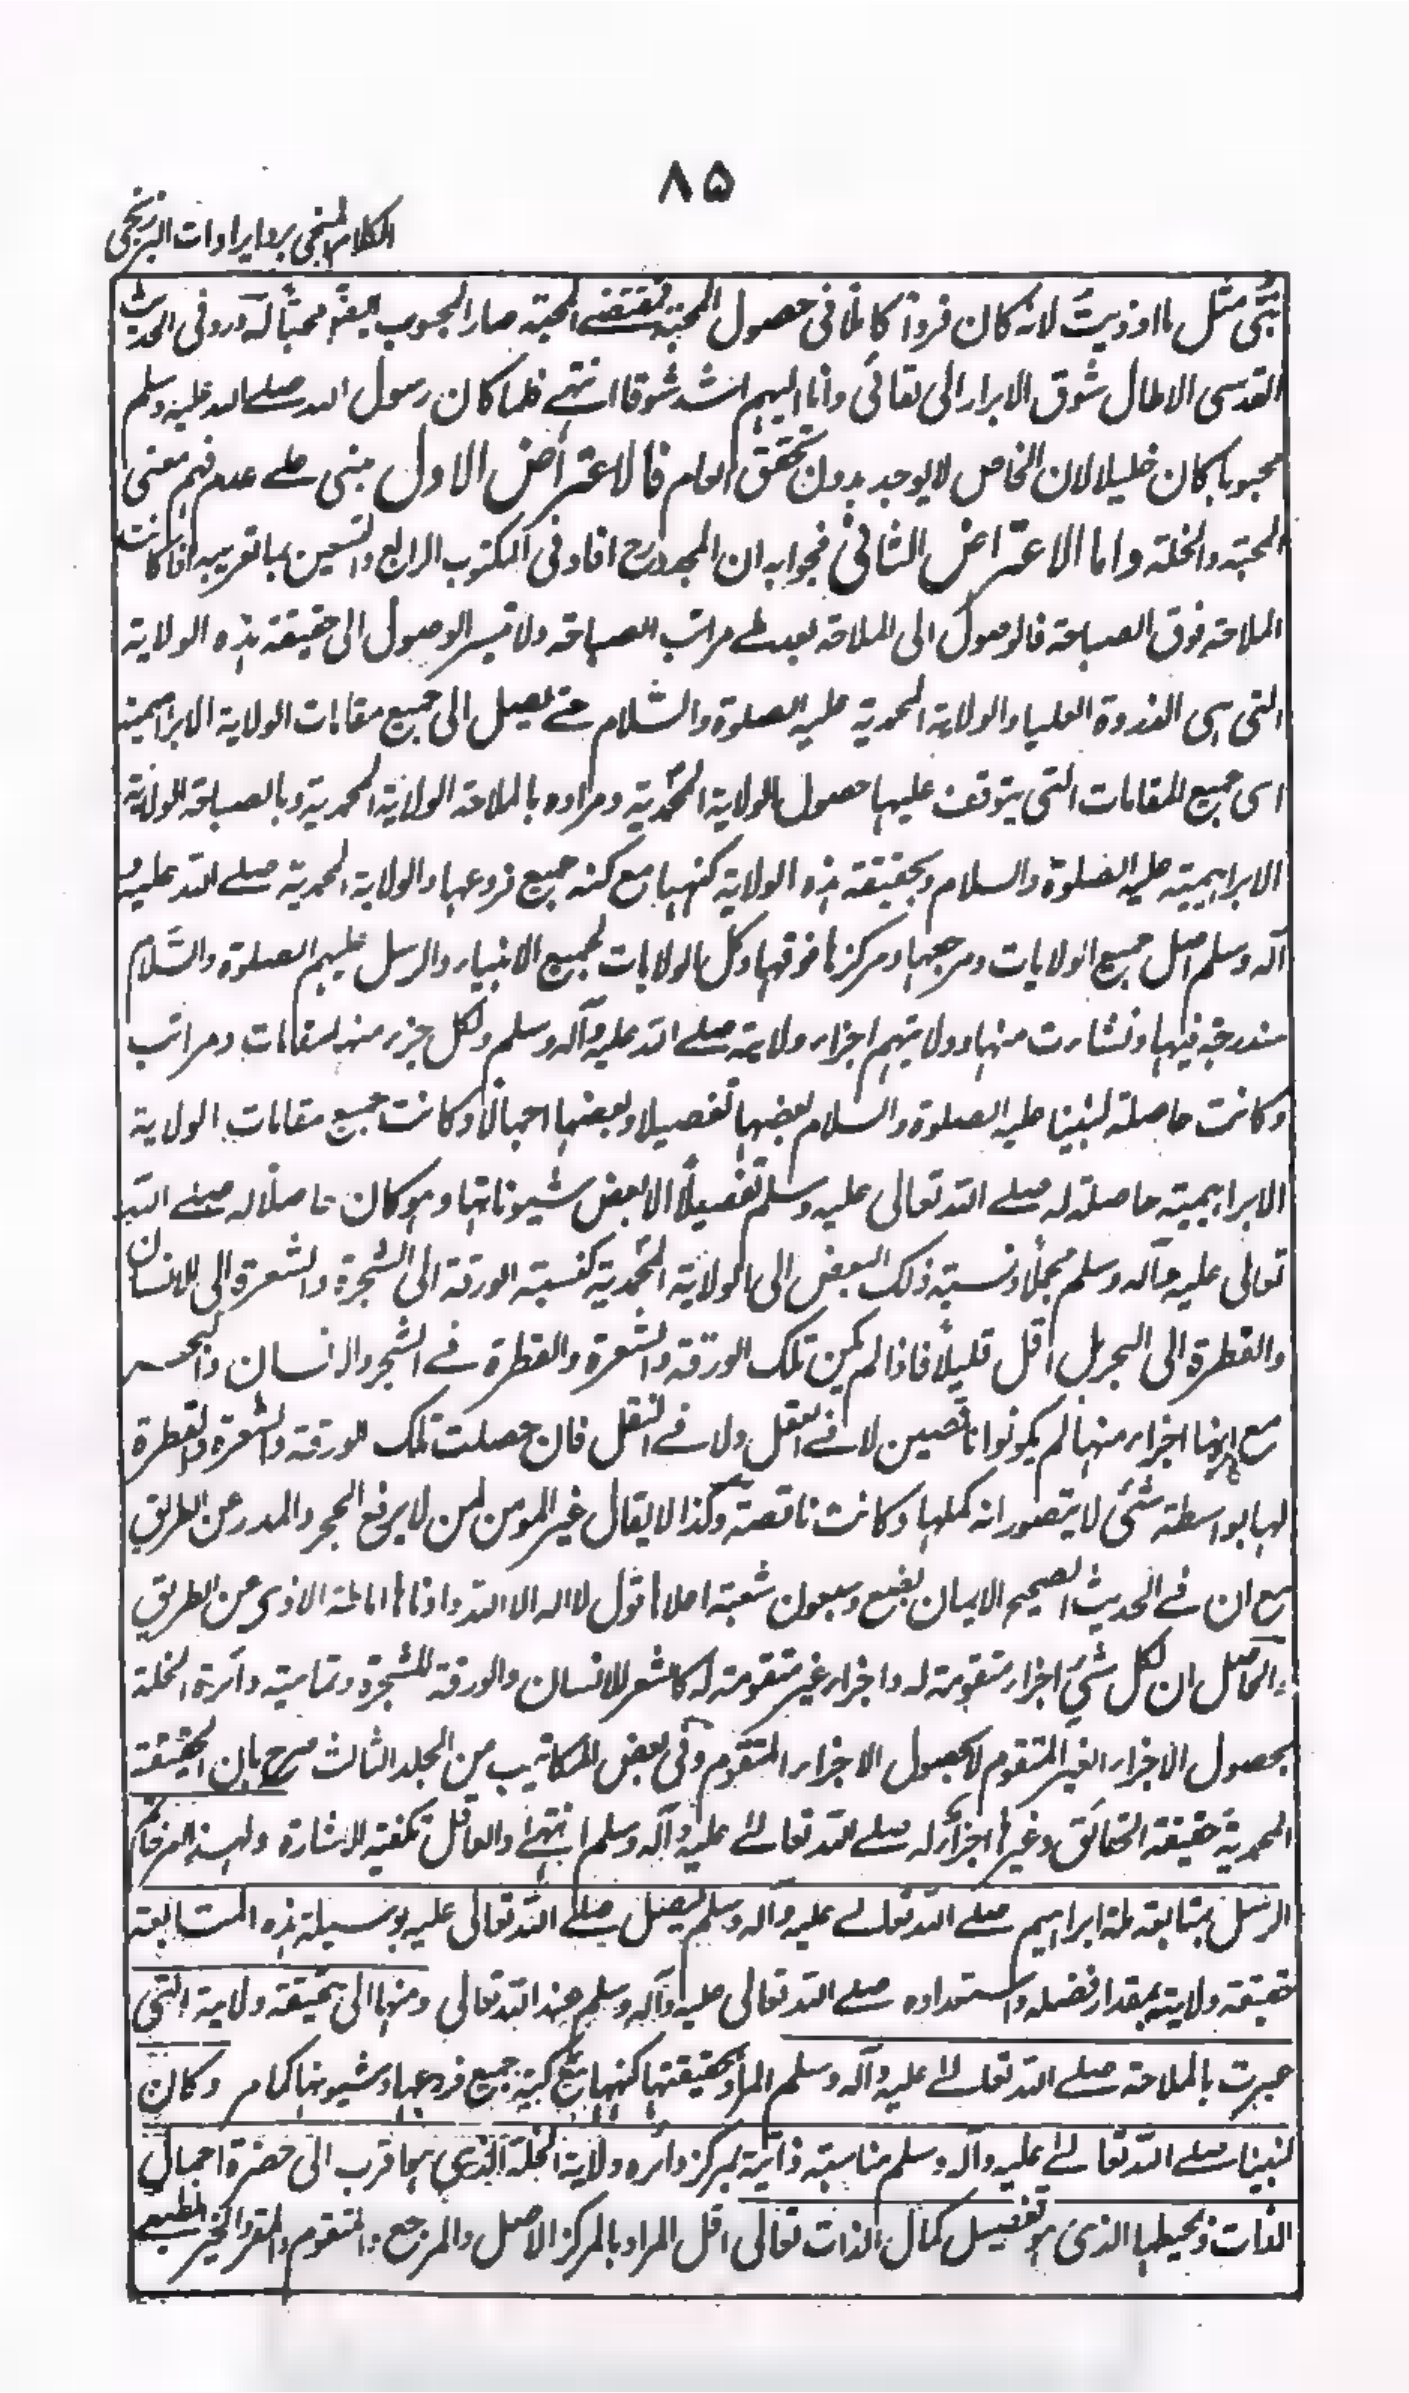 ٨۵
الكلام المنجى برد ايرادات البرزنجى
نبى مثل ما اوذيت لانه كان فردا كاملا فى حصول المحبة فمقتضے المحبة صار المحبوب ايضا محبا له ورد فى الحديث
القدسى الا طال شوق الابرار الى لقائى وانا اليهم اشد شوقا انتهے فلما كان رسول الله صلے الله عليه وسلم
محبوبا كان خليلا لان الخاص لا يوجد بدون تحقق العام فالاعتراض الاول مبنى علے عدم فهم معنى
المحبة والخلة واما الاعتراض الثانى فجوابه ان المجدد رح افاد فى المكتوب الرابع والتسعين بما تعريبه اذا كانت
الملاحة فوق الصباحة فالوصول الى الملاحة بعد طے مراتب الصباحة ولا تيسر الوصول الى حقيقة هذه الولاية
التى هى الذروة العليا والولاية المحمدية عليه الصلوة والسلام حتے يصل الى جميع مقامات الولاية الابراهيمية
اى جميع المقامات التى يتوقف عليها حصول الولاية المحمدية ومراده بالملاحة الولاية المحمدية وبالصباحة الولاية
الابراهيمية عليه الصلوة والسلام وبحقيقة هذه الولاية كنهها مع كنه جميع فروعها والولاية المحمدية صلے الله عليه و
آله وسلم اصل جميع الولايات ومرجعها ومركزها فوقها وكل الولايات لجميع الانبياء والرسل عليهم الصلوة والسلام
مندرجة فيها ونشاءت منها وولايتهم اجزاء ولايته صلے الله عليه وآله وسلم ولكل جزء منها مقامات ومراتب
وكانت حاصلة لنبينا عليه الصلوة والسلام بعضها تفصيلا وبعضها اجمالا وكانت جميع مقامات الولاية
الابراهيمية حاصلة له صلے الله تعالى عليه وسلم تفصيلا الا بعض شيوناتها وهو كان حاصلا له صلے الله
تعالى عليه وآله وسلم مجملا ونسبة ذلك البعض الى الولاية المحمدية كنسبة الورقة الى الشجرة والشعرة الى الانسان
والقطرة الى البحر بل اقل قليلا فاذا لم يكن تلك الورقة والشعرة والقطرة فے الشجر والانسان والبحر
مع انها اجزاء منها لم يكونوا ناقصين لا فے العقل ولا فے النقل فان حصلت تلك الورقة والشعرة والقطرة
لها بواسطة شئ لا يتصور انه كملها وكانت ناقصة وكذا لا يقال غير المومن لمن لا يرفع الحجر والمدر عن الطريق
مع ان فے الحديث الصحيح الايمان بضع وسبعون شعبة اعلاها قول لا اله الا الله وادناها اماطة الاذى عن الطريق
والحاصل ان لكل شئ اجزاء متقومة له واجزاء غير متقومة له كالشعر للانسان والورقة للشجرة وتمامية دائرة الخلة
بحصول الاجزاء الغير المتقوم لا بحصول الاجزاء المتقوم وفى بعض المكاتيب من الجلد الثالث صرح بان الحقيقة
المحمدية حقيقة الحقائق وغيرها اجزاء له صلے الله تعالے عليه وآله وسلم انتهے والعاقل تكفيه الاشارة ولهذا امر خاتم
الرسل بمتابعة ملة ابراهيم صلے الله تعالے عليه وآله وسلم ليصل صلے الله تعالى عليه بوسيلة هذه المتابعة
حقيقة ولايته بمقدار فضله واستعداده صلے الله تعالى عليه وآله وسلم عند الله تعالى ومنها الى حقيقة ولايته التى
عبرت بالملاحة صلے الله تعالے عليه وآله وسلم المراد بحقيقتها كنهها مع جميع فروعها وشيونها كما مر وكان
لنبينا صلے الله تعالے عليه وآله وسلم مناسبة ذاتية بمركز دائره ولاية الخلة الذى بها قرب الى حضرة اجمال
الذات ومحيطها الذى هو تفصيل كمال الذات تعالى اقل المراد بالمركز الاصل والمرجع والمتقوم والمقر والحيز الطبيعے